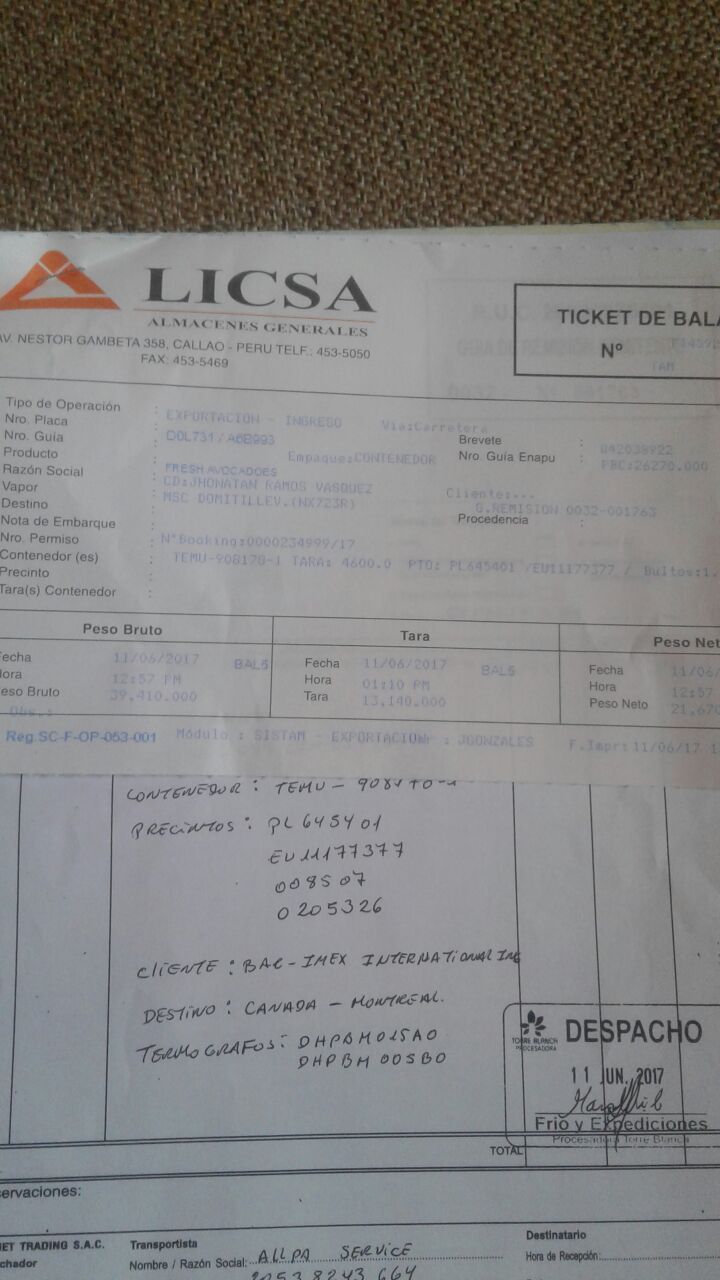 LICSA
ALMACENES GENERALES
AV. NESTOR GAMBETA 358, CALLAO - PERU TELF.: 453-5050
FAX: 453-5469
TICKET DE BALA
Nº
Tipo de Operación : EXPORTACION - INGRESO Via:Carretera
Nro. Placa : D0L731/A6B993 Brevete : Q42038922
Nro. Guía : Empaque:CONTENEDOR Nro. Guía Enapu : PBC:26270.000
Producto : FRESH AVOCADOES
Razón Social : CD:JHONATAN RAMOS VASQUEZ Cliente:...
Vapor : MSC DOMITILLEV.(NX723R) G.REMISION 0032-001763
Destino : Procedencia :
Nota de Embarque : N°Booking:0000234999/17
Nro. Permiso :
Contenedor (es) : TEMU-908170-1 TARA: 4600.0 PTO: PL645401 /EU11177377 / Bultos:1.
Precinto :
Tara(s) Contenedor :
Peso Bruto Tara Peso Net
Fecha 11/06/2017 BAL5 Fecha 11/06/2017 BAL5 Fecha 11/06/
Hora 12:57 PM Hora 01:10 PM Hora 12:57
Peso Bruto 39,410.000 Tara 13,140.000 Peso Neto 21,670
Obs.:
Reg.SC-F-OP-053-001 Módulo : SISTAM - EXPORTACION : JGONZALES F.Impr:11/06/17
CONTENEDOR : TEMU -
PRECINTOS : PL 645401
EU11177377
008507
0205326
CLIENTE : BAC-IMEX INTERNATIONAL INC
DESTINO : CANADA - MONTREAL.
TERMOGRAFOS : DHPBM025A0
DHPBM005B0
TORRE BLANCA
PROCESADORA
DESPACHO
11 JUN. 2017
Frío y Expediciones
Procesadora Torre Blanca
TOTAL
ervaciones:
ET TRADING S.A.C. Transportista Destinatario
chador Nombre / Razón Social: ALLPA SERVICE Hora de Recepción:
20538243664